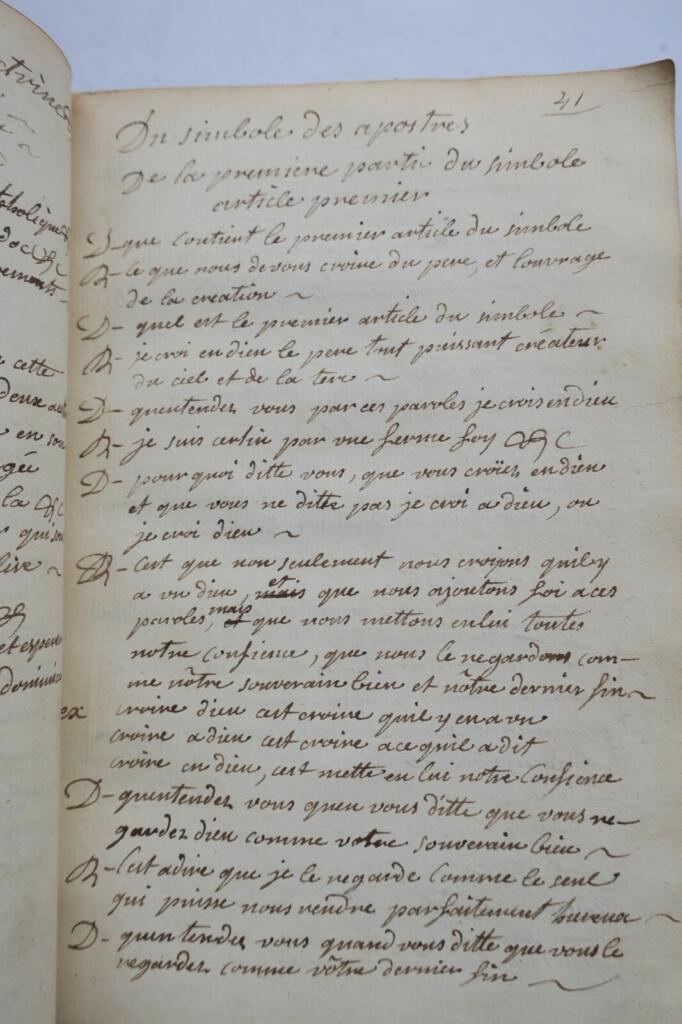 ctrine
tholique &
doc &c
rements
cette
deux au
en son
gée
la &c
qui son
live ~
&
et esper
dominic
41
Du simbole des apostres
De la premiere parti du simbole
article premier
D- que contient le premier article du simbole
R- ce que nous devons croire du pere, et l'ouvrage
de la creation ~
D- quel est le premier article du simbole ~
R- je croi en dieu le pere tout puissant créateur
du ciel et de la tere ~
D- quentendez vous par ces paroles je crois en dieu
R- je suis certin par une ferme foy &c
D- pourquoi ditte vous, que vous croïez en dieu
et que vous ne ditte pas je croi a dieu, ou
je croi dieu ~
R- Cest que non seulement nous croïons quil y
a un dieu, mais et que nous ajoutons foi a ces
paroles, et mais que nous mettons en lui toutes
notre confience, que nous le regardons com-
me nôtre souverain bien et nôtre dernier fin ~
ex croire dieu cest croire quil y en a un
croire a dieu cest croire a ce quil a dit
croire en dieu, cest mette en lui notre confience
D- quentendez vous quen vous ditte que vous re-
gardez dieu comme votre souverain bien ~
R- Cest a dire que je le regarde comme le seul
qui puisse nous rendre parfaitement heureux ~
D- quentendez vous quand vous ditte que vous le
regardez comme vôtre dernier fin ~